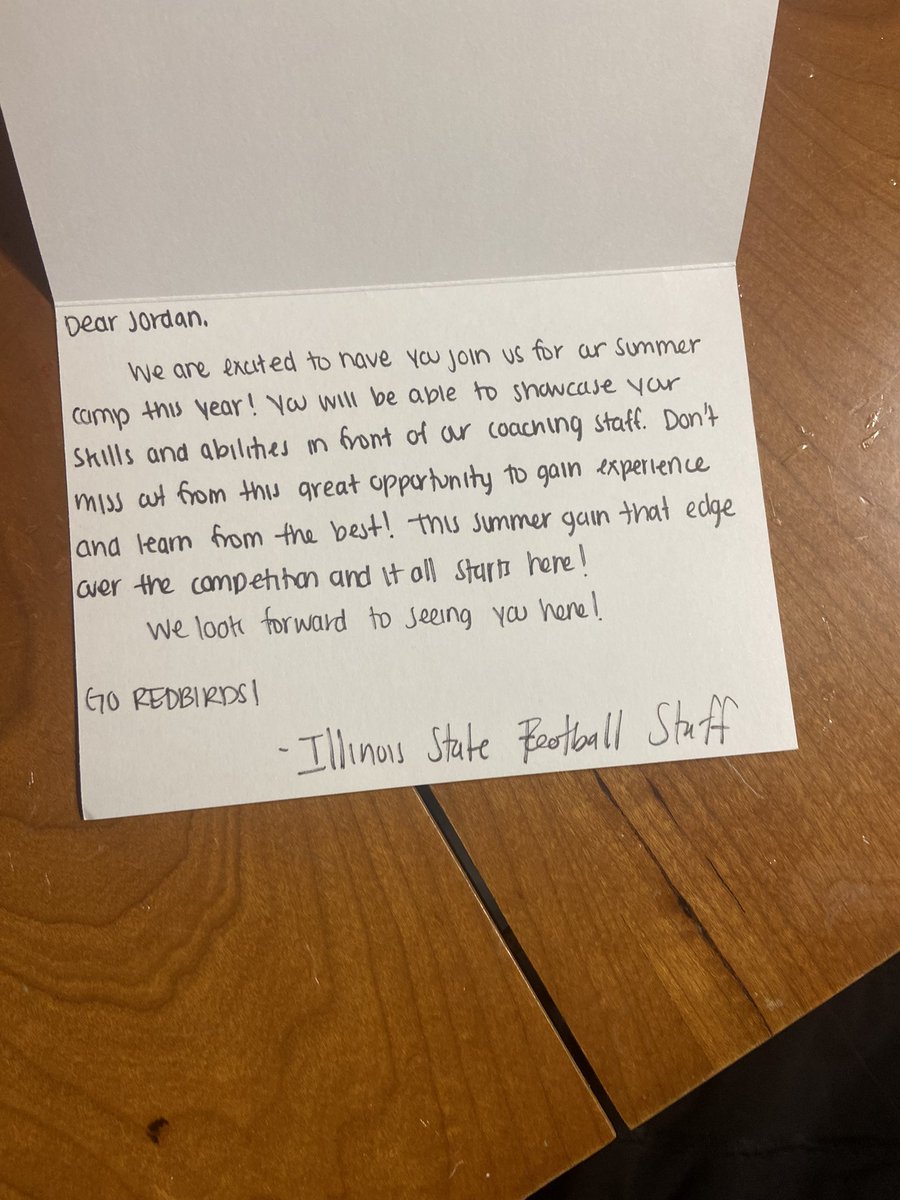 Dear Jordan,
We are excited to have you join us for our summer
camp this year! You will be able to showcase your
skills and abilities in front of our coaching staff. Don't
miss out from this great opportunity to gain experience
and learn from the best! This summer gain that edge
over the competition and it all starts here!
We look forward to seeing you here!
GO REDBIRDS!
- Illinois State Football Staff